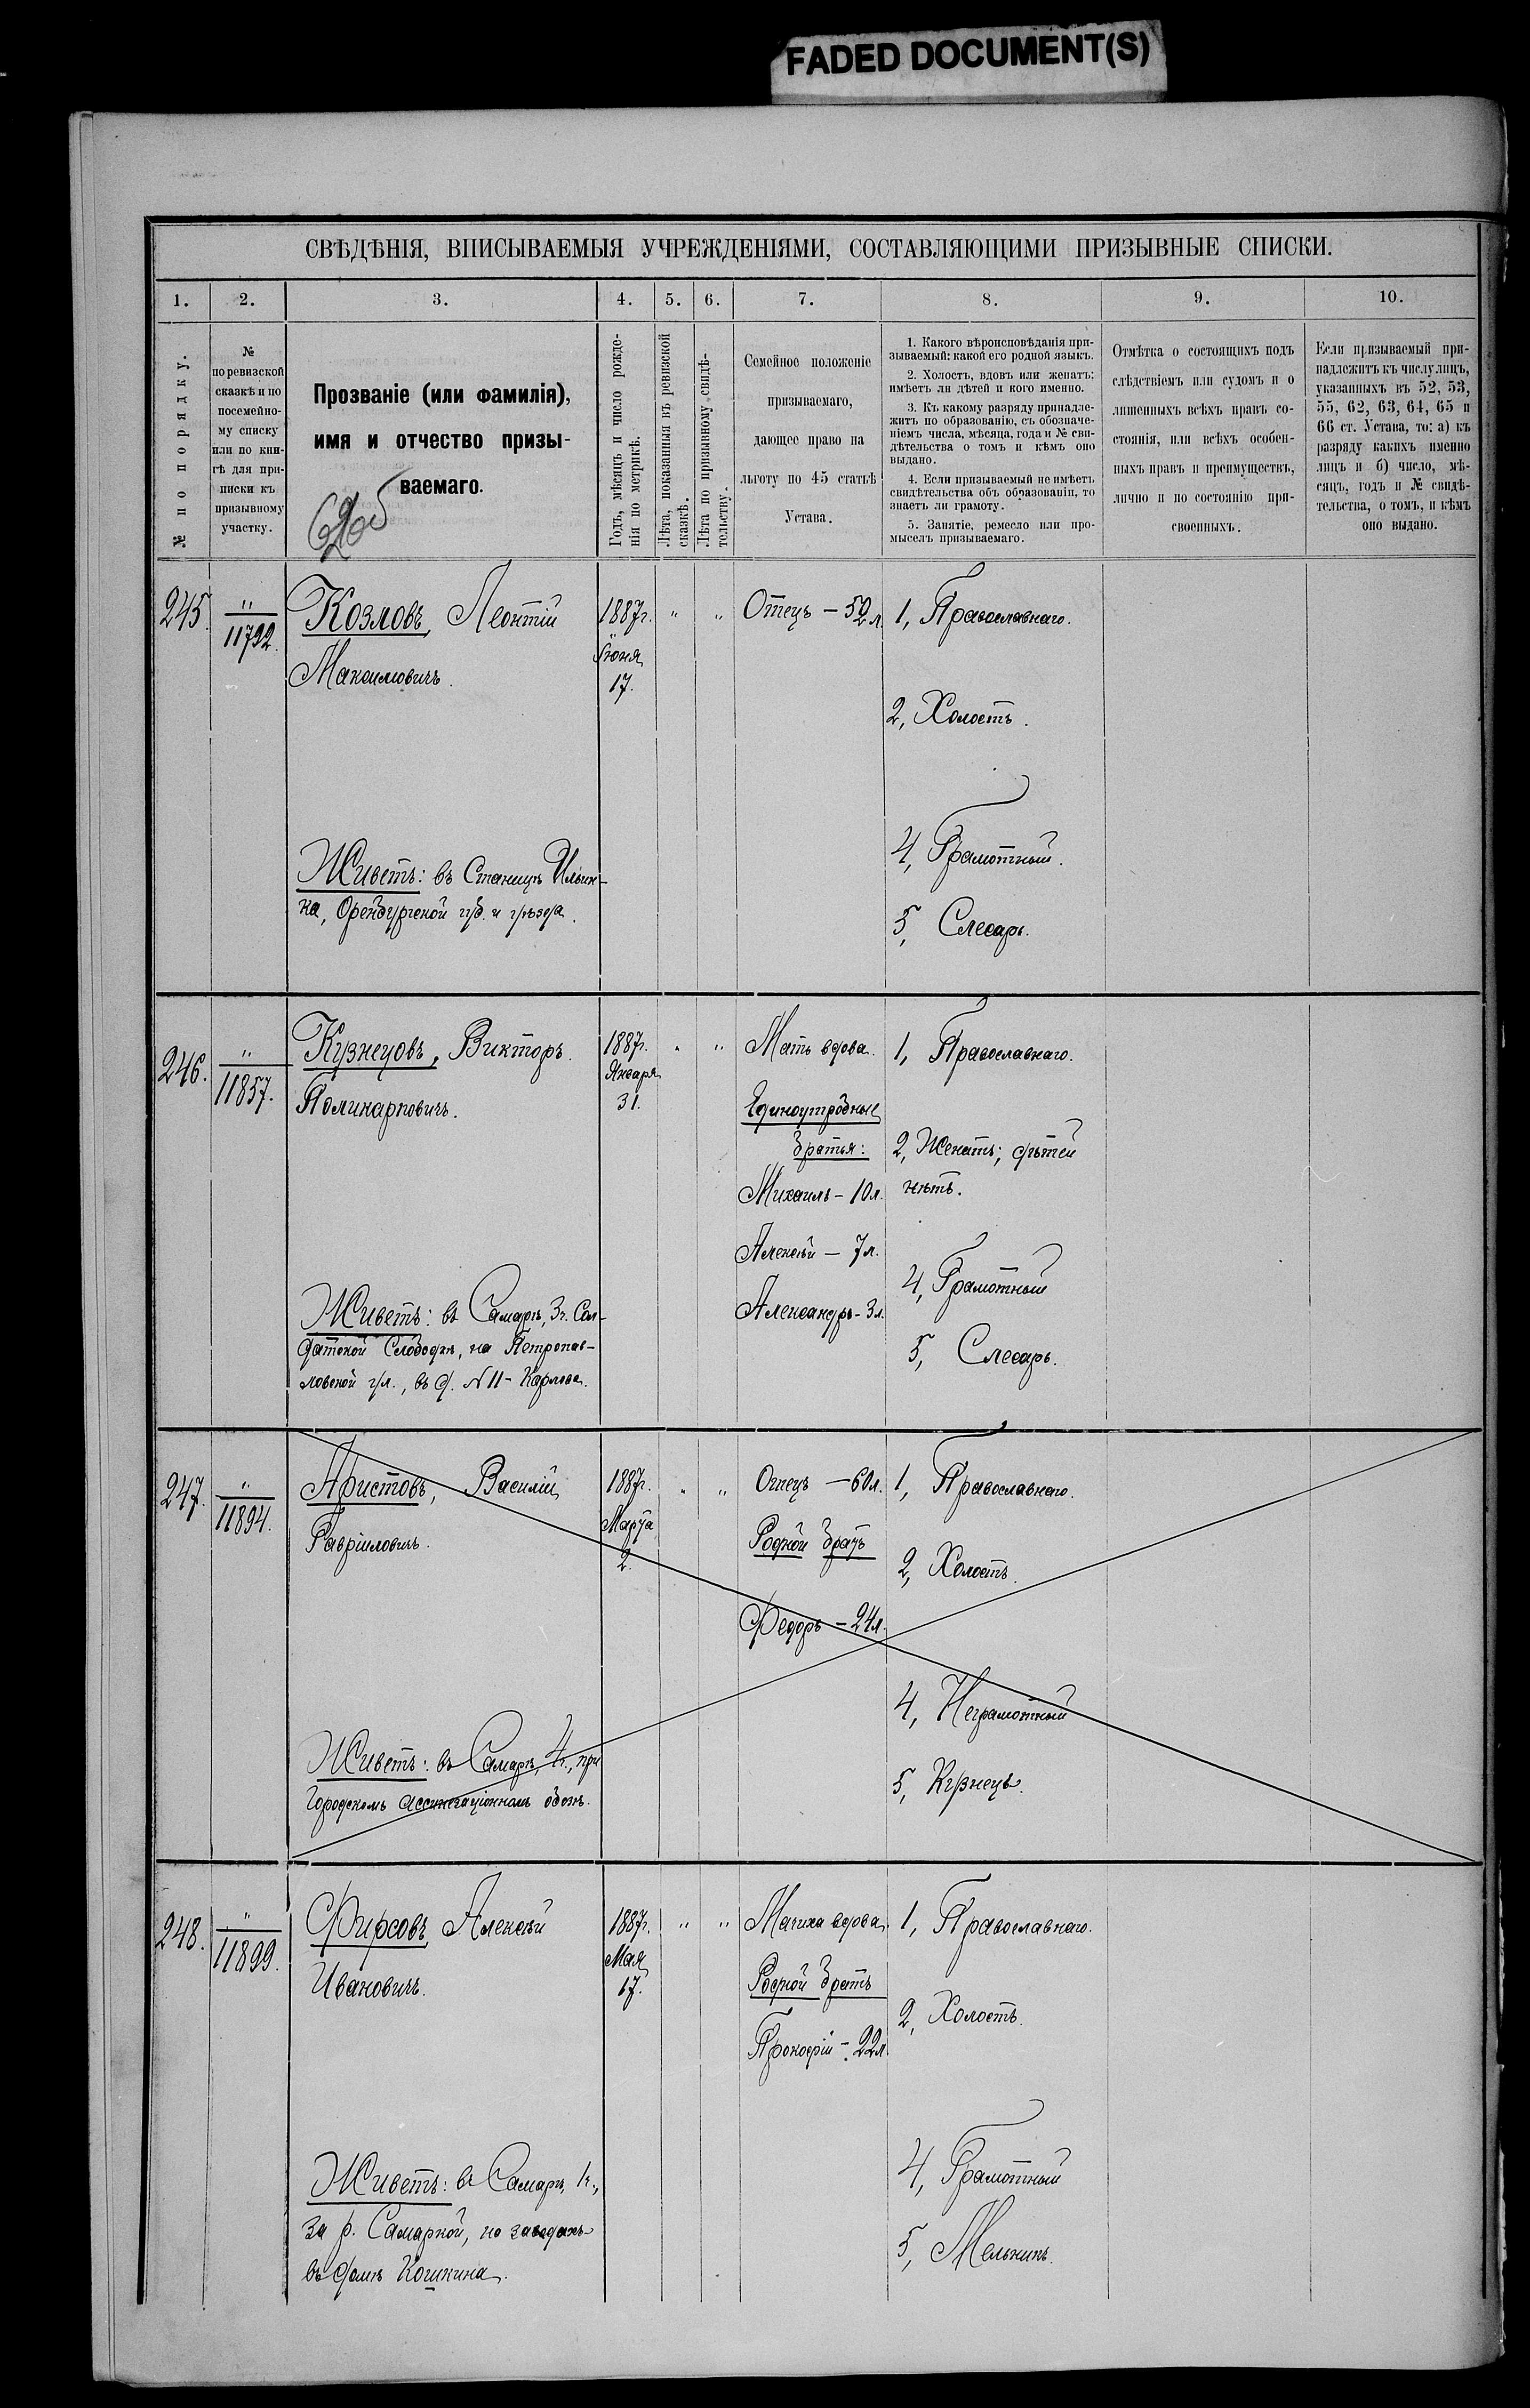 FADED DOCUMENT(S)
СВѢДѢНІЯ, ВПИСЫВАЕМЫЯ УЧРЕЖДЕНІЯМИ, СОСТАВЛЯЮЩИМИ ПРИЗЫВНЫЕ СПИСКИ.
1. 2. 3. 4. 5. 6. 7. 8. 9. 10.
№ по порядку.
№
по ревизской
сказкѣ и по
посемейно-
му списку
или по кни-
гѣ для при-
писки къ
призывному
участку.
Прозваніе (или фамилія),
имя и отчество призы-
ваемаго.
Годъ, мѣсяцъ и число рожде-
нія по метрикѣ.
Лѣта, показанныя въ ревизской
сказкѣ.
Лѣта по призывному свидѣ-
тельству.
Семейное положеніе
призываемаго,
дающее право на
льготу по 45 статьѣ
Устава.
1. Какого вѣроисповѣданія при-
зываемый: какой его родной языкъ.
2. Холостъ, вдовъ или женатъ:
имѣетъ ли дѣтей и кого именно.
3. Къ какому разряду принадле-
житъ по образованію, съ обозначе-
ніемъ числа, мѣсяца, года и № сви-
дѣтельства о томъ и кѣмъ оно
выдано.
4. Если призываемый не имѣетъ
свидѣтельства объ образованіи, то
знаетъ ли грамоту.
5. Занятіе, ремесло или про-
мыселъ призываемаго.
Отмѣтка о состоящихъ подъ
слѣдствіемъ или судомъ и о
лишенныхъ всѣхъ правъ со-
стоянія, или всѣхъ особен-
ныхъ правъ и преимуществъ,
лично и по состоянію при-
своенныхъ.
Если призываемый при-
надлежитъ къ числу лицъ,
указанныхъ въ 52, 53,
55, 62, 63, 64, 65 и
66 ст. Устава, то: а) къ
разряду какихъ именно
лицъ и б) число, мѣ-
сяцъ, годъ и № свидѣ-
тельства, о томъ, и кѣмъ
оно выдано.
245.
"
11792.
Козловъ, Леонтій
Максимовичъ.
Живетъ: въ Станицѣ Ильин-
ка, Оренбургской губ. и уѣзда.
1887г.
Іюня
17.
" "
Отецъ - 52 л.
1, Православнаго.
2, Холостъ.
4, Грамотный.
5, Слесарь.
246.
"
11857.
Кузнецовъ, Викторъ
Поликарповичъ.
Живетъ: въ Самарѣ, 3ч. Сол-
датской Слободкѣ, на Петропав-
ловской ул., въ д. № 11 - Карлова.
1887г.
Января
31.
" "
Мать вдова.
Единоутробные
братья:
Михаилъ - 10 л.
Алексѣй - 7 л.
Александръ - 3 л.
1, Православнаго.
2, Женатъ; дѣтей
нѣтъ.
4, Грамотный
5, Слесарь.
247.
"
11894.
Аристовъ, Василій
Гавріиловичъ.
Живетъ: въ Самарѣ, 4ч., при
Городскомъ Ассенизаціонномъ обозѣ.
1887г.
Марта
2.
" "
Отецъ - 60 л.
Родной братъ
Федоръ - 24 л.
1, Православнаго.
2, Холостъ.
4, Неграмотный
5, Кузнецъ.
248.
"
11899.
Фирсовъ, Алексѣй
Ивановичъ.
Живетъ: въ Самарѣ, 1ч.,
за р. Самаркой, на
въ домѣ Кошкина.
1887г.
Мая
17.
" "
Мачиха вдова.
Родной братъ
Прокофій - 22 л.
1, Православнаго.
2, Холостъ.
4, Грамотный
5, Мельникъ.